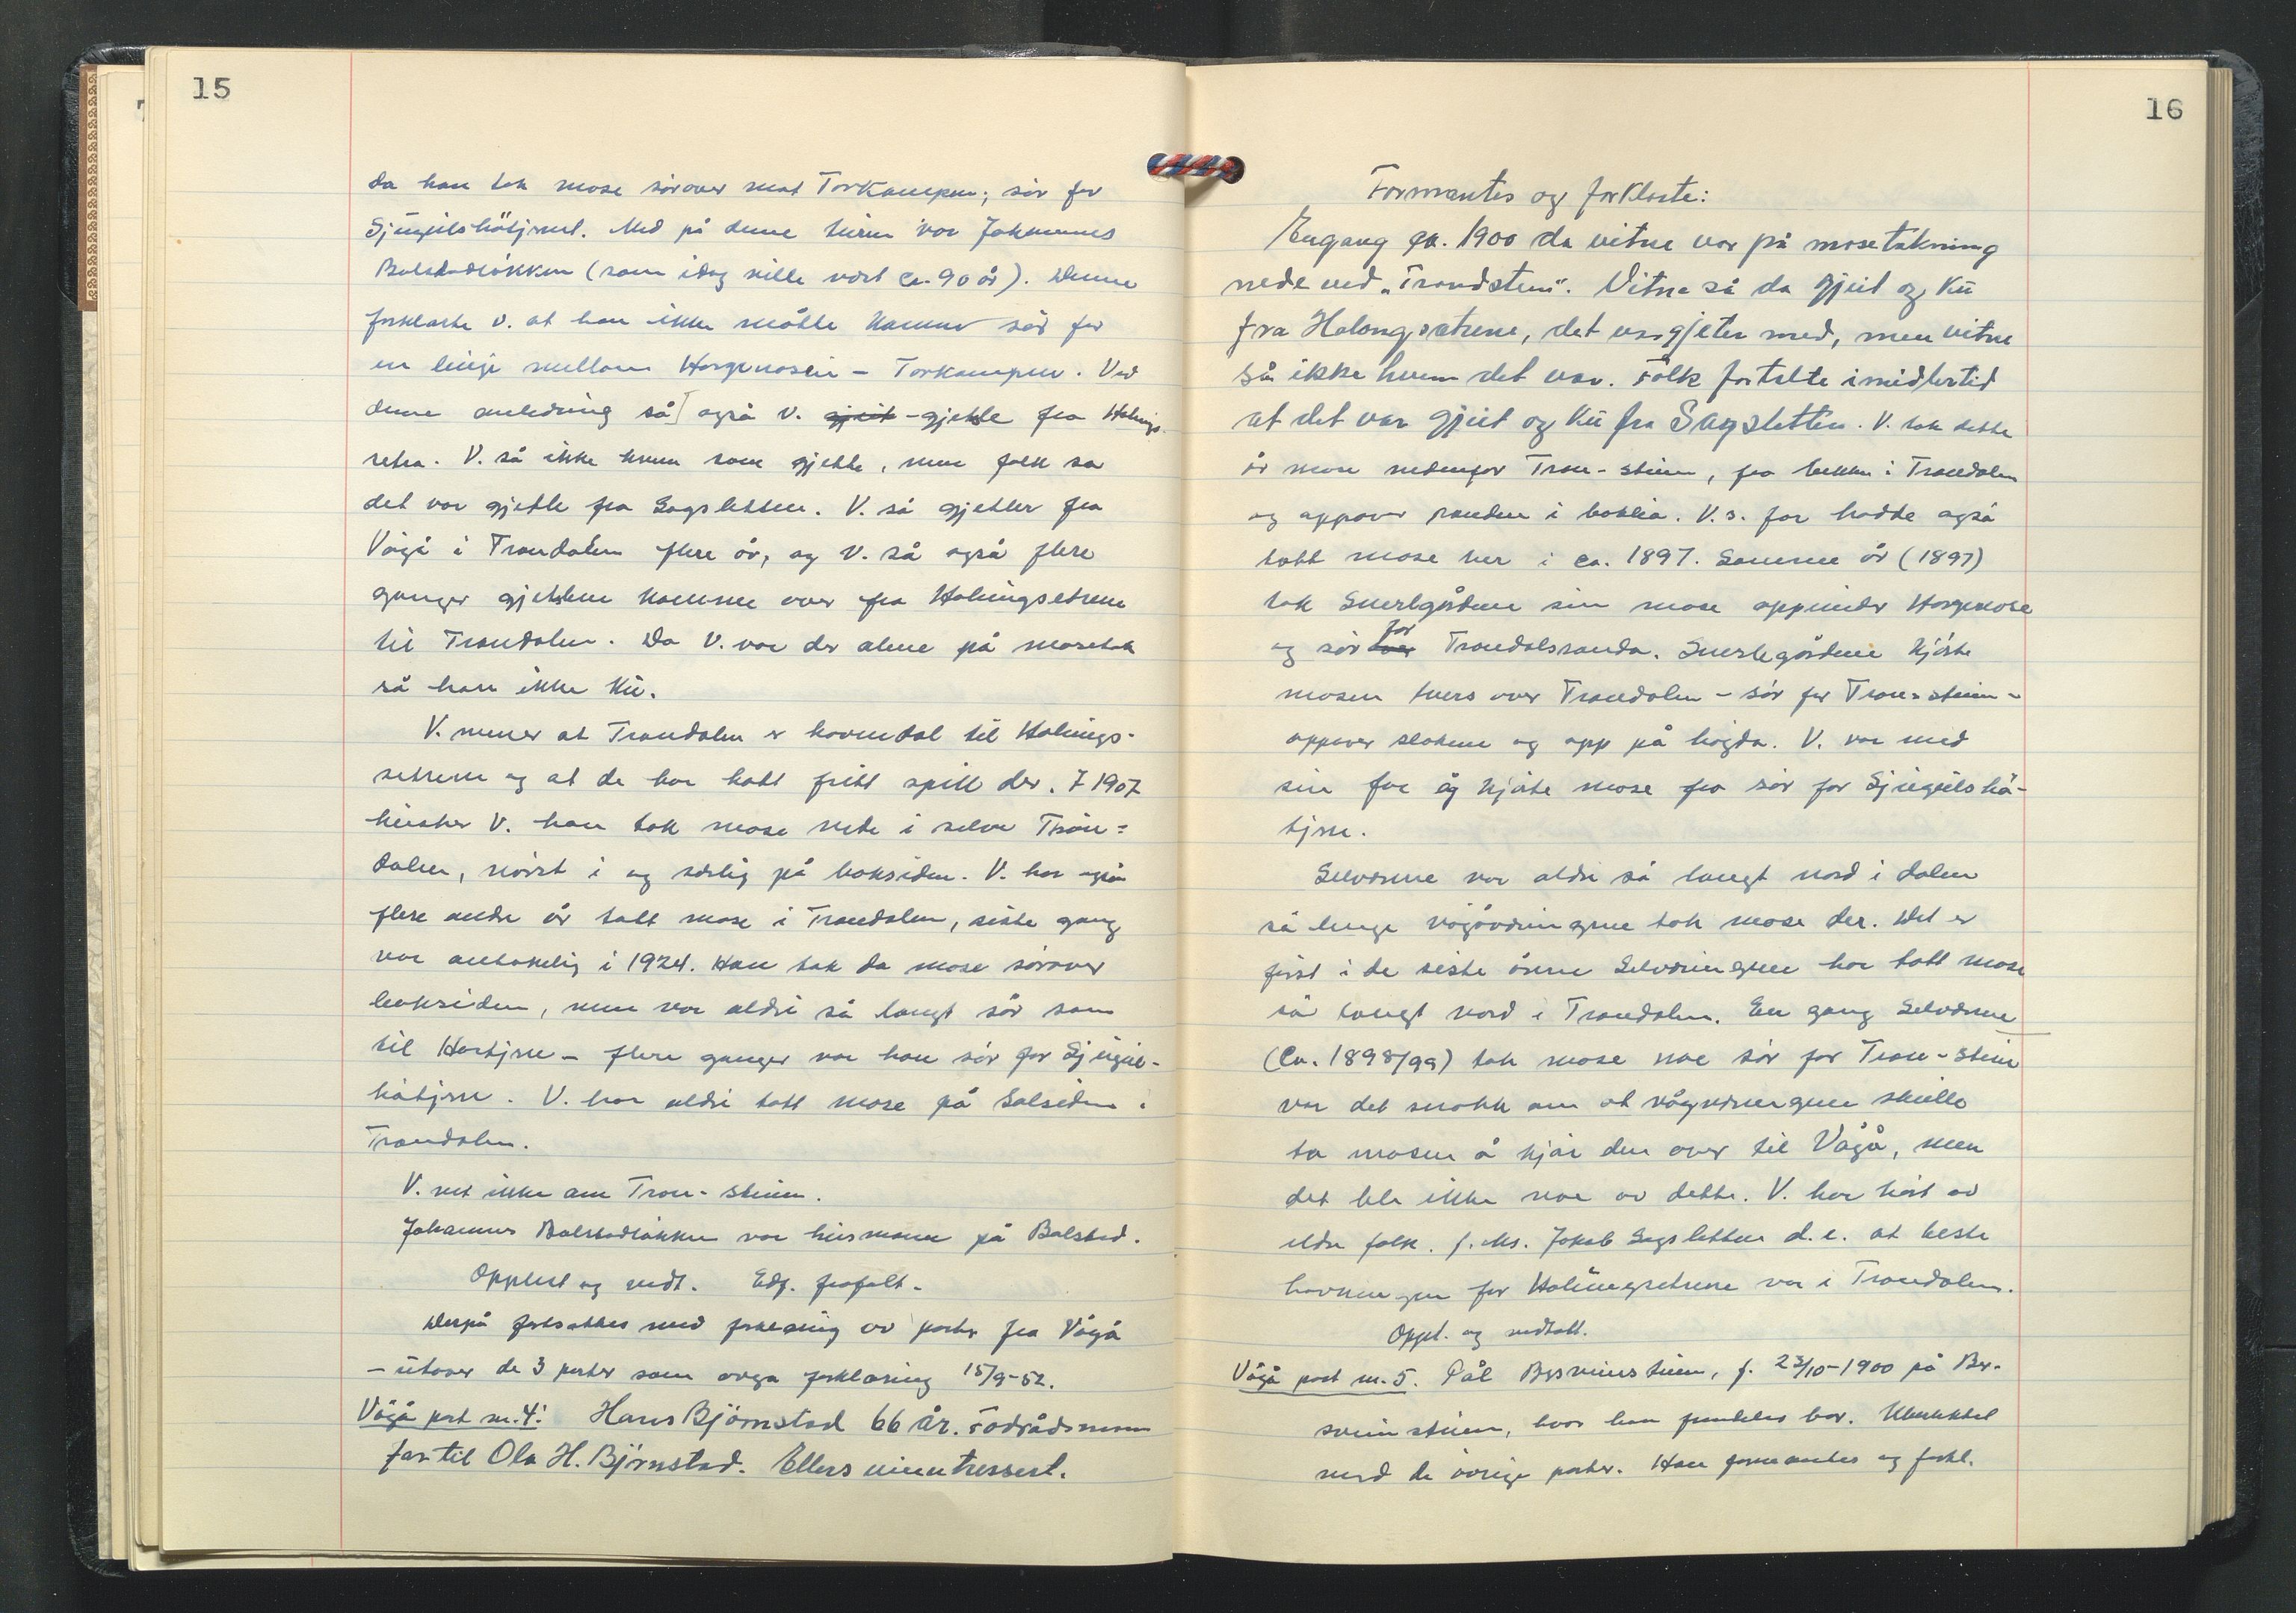 15
da han tok mose sørover mot Torkampen; sør for
Sjugulshåtjønnet. Med på denne turen var Johannes
Bolstadløkken (som idag ville vært ca. 90 år). Denne
forklarte v. at han ikke måtte komme sør for
en linje mellom Horgenosin - Torkampen. Ved
denne anledning så også v. gjeit -gjetle fra Holungs-
setra. V. så ikke hvem som gjette, men folk sa
det var gjetle fra Sagsletten. V. så gjetler fra
Vågå i Trondalen flere år, og v. så også flere
ganger gjetlene komme over fra Holungsetrene
til Trondalen. Da V. var der alene på mosetak
så han ikke ku.
V. mener at Trondalen er havnedal til Holungs-
setrene og at de har hatt fritt spill der. I 1907
husker V. han tok mose nede i selve Tron=
dalen, nørst i og særlig på baksiden. V. har også
flere andre år tatt mose i Trondalen, siste gang
var antakelig i 1924. Han tok da mose sørover
baksiden, men var aldri så langt sør som
til Hortjønn - flere ganger var han sør for Sjugul-
håtjønn. V. har aldri tatt mose på Solsiden i
Trondalen.
V. vet ikke om Tron-steinen.
Johannes Bolstadløkken var husmann på Bolstad.
Opplest og vedt. Edf. frafalt.
Derpå fortsattes med forklaring av parter fra Vågå
- utover de 3 parter som avga forklaring 15/9-52.
Vågå part nr. 4: Hans Bjørnstad 66 år. Fødrådsmann
far til Ola H. Bjørnstad. Ellers uinntressert.
16
Formantes og forklarte:
Engang ca. 1900 da vitne var på mosetakning
nede ved „Trondsten". Vitne så da gjeit og ku
fra Holongsætrene, det var gjeter med, men vitne
så ikke hvem det var. Folk fortalte imidlertid
at det var gjeit og ku fra Sagsletten. V. tok dette
år mose nedenfor Tron-steinen, fra bekken i Trondalen
og oppover randen i baklia. V.s. far hadde også
tatt mose her i ca. 1897. Samme år (1897)
tok Snerlegårdene sin mose oppunder Horgenose
og sør over for Trondalsranda. Snerlegårdene kjørte
mosen tvers over Trondalen - sør for Tron-steinen -
oppover slakene og opp på høgda. V. var med
sin far og kjørte mose fra sør for Sjugulshå-
tjønn.
Selværene var aldri så langt nord i dalen
så lenge vågåværingene tok mose der. Det er
først i de siste årene Selværingene har tatt mose
så langt nord i Trondalen. En gang Selværene
(Ca. 1898/99) tok mose noe sør for Tron-steinen
var det snakk om at vågværingene skulle
ta mosen å kjøre den over til Vågå, men
det ble ikke noe av dette. V. har hørt av
eldre folk. f. eks. Jakob Sagsletten d.e. at beste
havningen for Holungsetrene var i Trondalen.
Oppl. og vedtatt.
Vågå part nr. 5. Pål Bessvinstuen, f. 23/10-1900 på Bes-
svinstuen, hvor han fremdeles bor. Ubeslektet
med de øvrige parter. Han formantes og forkl.